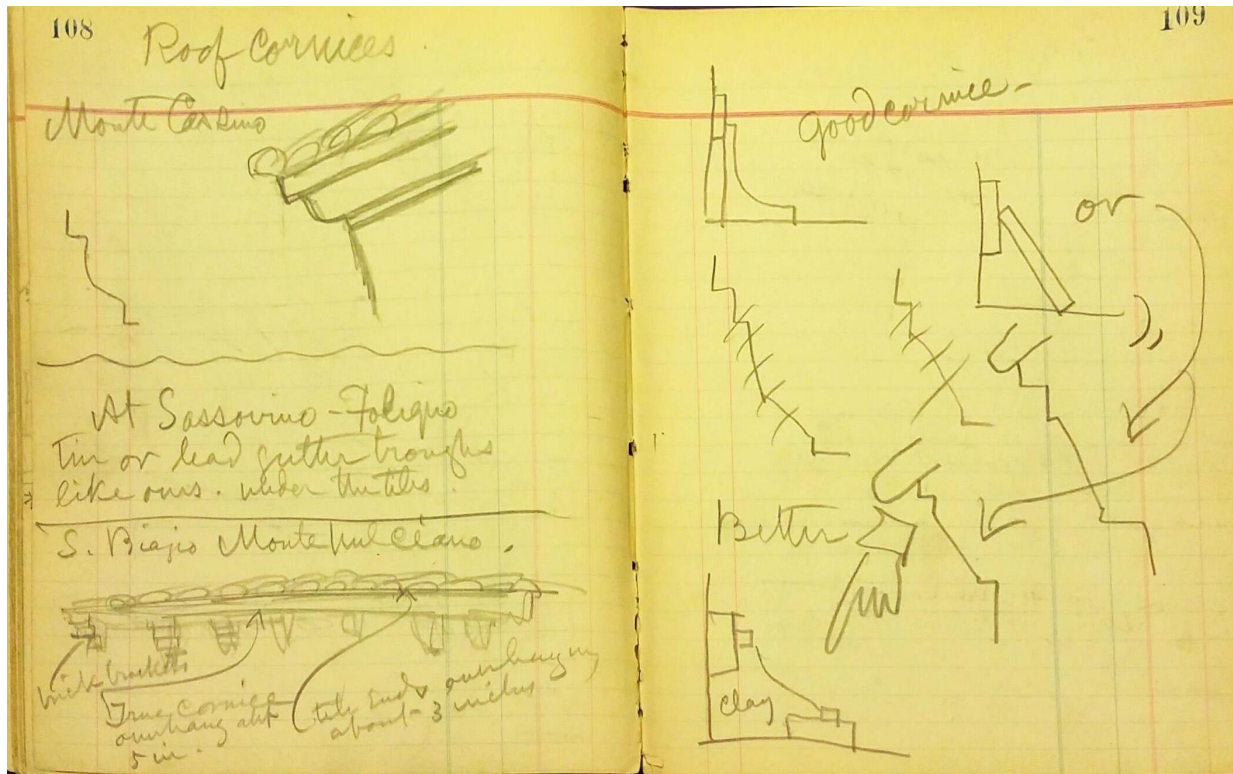 108
Roof Cornices.
Monte Cassino
At Sassovino - Foligno
Tin or lead gutter troughs
like ours. under the tiles.
S. Biagio Montepulciano.
brick brackets
True cornice
overhang abt
5 in.
tile ends overhanging
about 3 inches
109
Good cornice -
or
Better
clay